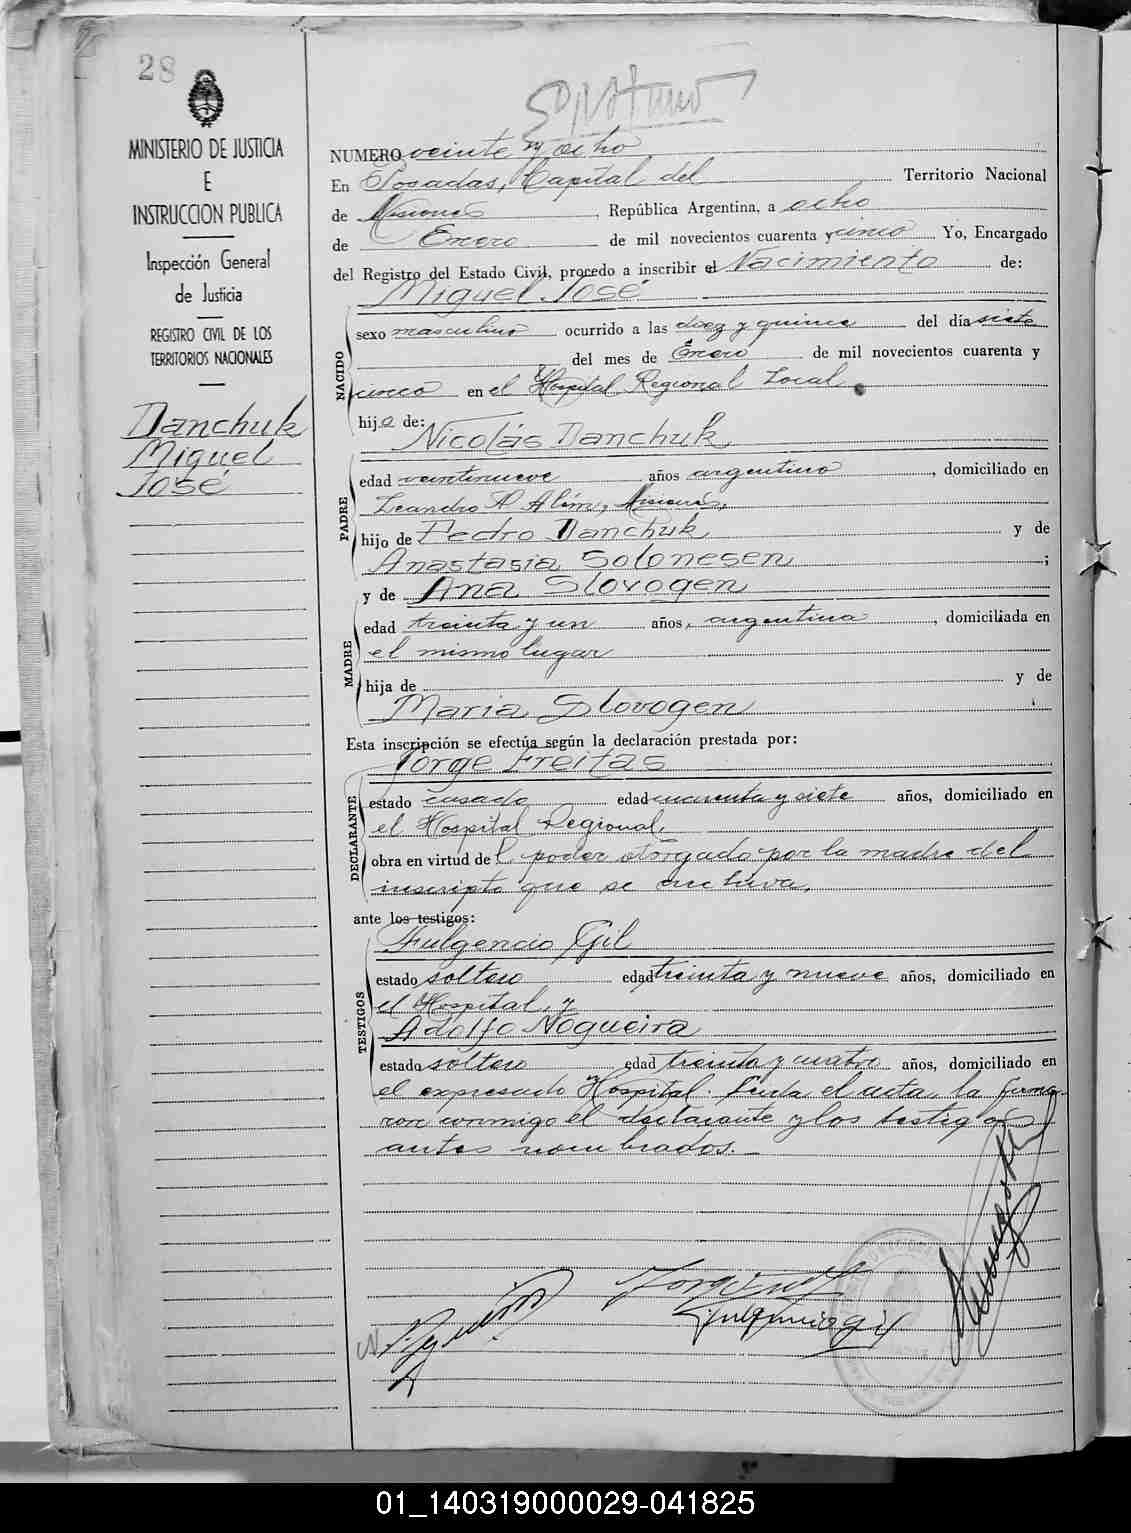 28
MINISTERIO DE JUSTICIA
E
INSTRUCCION PUBLICA
Inspección General
de Justicia
REGISTRO CIVIL DE LOS
TERRITORIOS NACIONALES
Danchuk
Miguel
José
NUMERO veinte y ocho
En Posadas, Capital del Territorio Nacional
de Misiones, República Argentina, a ocho
de Enero de mil novecientos cuarenta y cinco Yo, Encargado
del Registro del Estado Civil, procedo a inscribir el Nacimiento de:
Miguel José
NACIDO
sexo masculino ocurrido a las diez y quince del día siete
del mes de Enero de mil novecientos cuarenta y
cinco en el Hospital Regional Local.
hijo de:
Nicolás Danchuk
PADRE
edad veintinueve años argentino, domiciliado en
Leandro N. Alem, Misiones,
hijo de Pedro Danchuk y de
Anastasia Solonesen;
y de Ana Slovogen
MADRE
edad treinta y un años, argentina, domiciliada en
el mismo lugar
hija de y de
Maria Slovogen
Esta inscripción se efectúa según la declaración prestada por:
Jorge Freitas
DECLARANTE
estado casado edad cuarenta y siete años, domiciliado en
el Hospital Regional,
obra en virtud del poder otorgado por la madre del
inscripto que se archiva,
ante los testigos:
Fulgencio Gil
TESTIGOS
estado soltero edad treinta y nueve años, domiciliado en
el Hospital, y
Adolfo Nogueira
estado soltero edad treinta y cuatro años, domiciliado en
el expresado Hospital. Leida el acta, la firma-
ron conmigo el declarante y los testigos
antes nombrados.
01_140319000029-041825